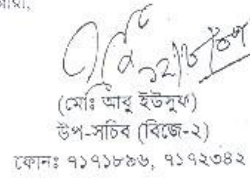 (মোঃ আবু ইউসুফ)
উপ-সচিব (বিজে-২)
ফোনঃ ৭১৭১৮৯৬, ৭১৭২৩৪২